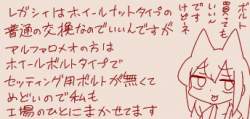 レガシィはホイールナットタイプの
普通の交換なのでいいんですが
アルファロメオの方は
ホイールボルトタイプで
セッティング用ボルトが無くて
めどいので私も
工場のひとにまかせてます
ボルト
買っても
いいん
です
けどネ